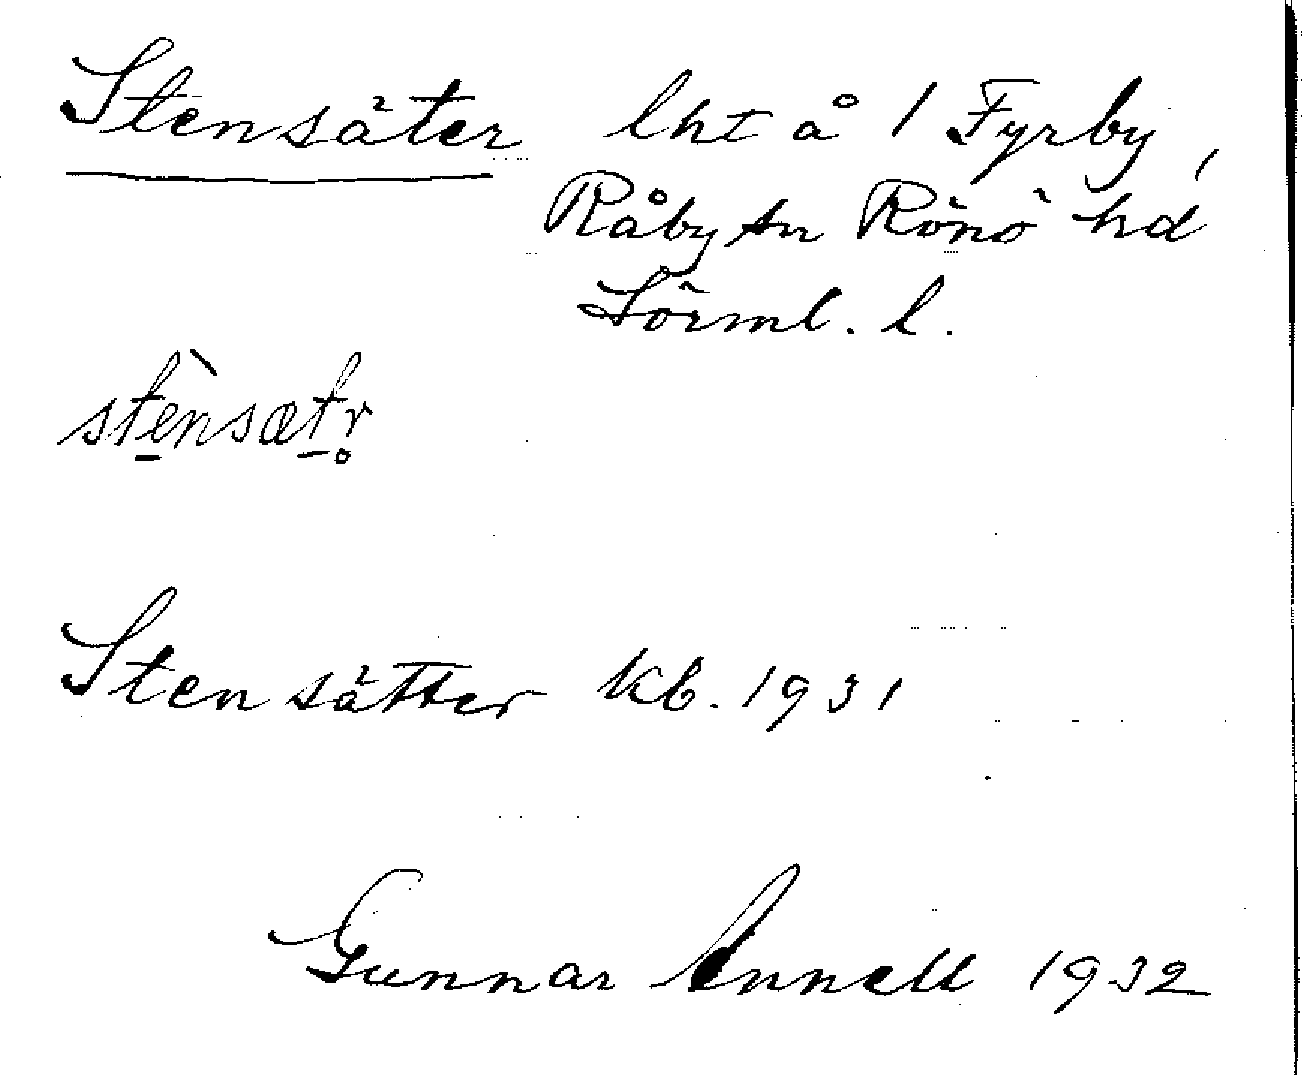 Stensäter lht å 1 Fyrby,
Råby sn Rönö hd
Sörml. l.
stè̱nsæṯr̥
Stensätter kb. 1931
Gunnar Annell 1932